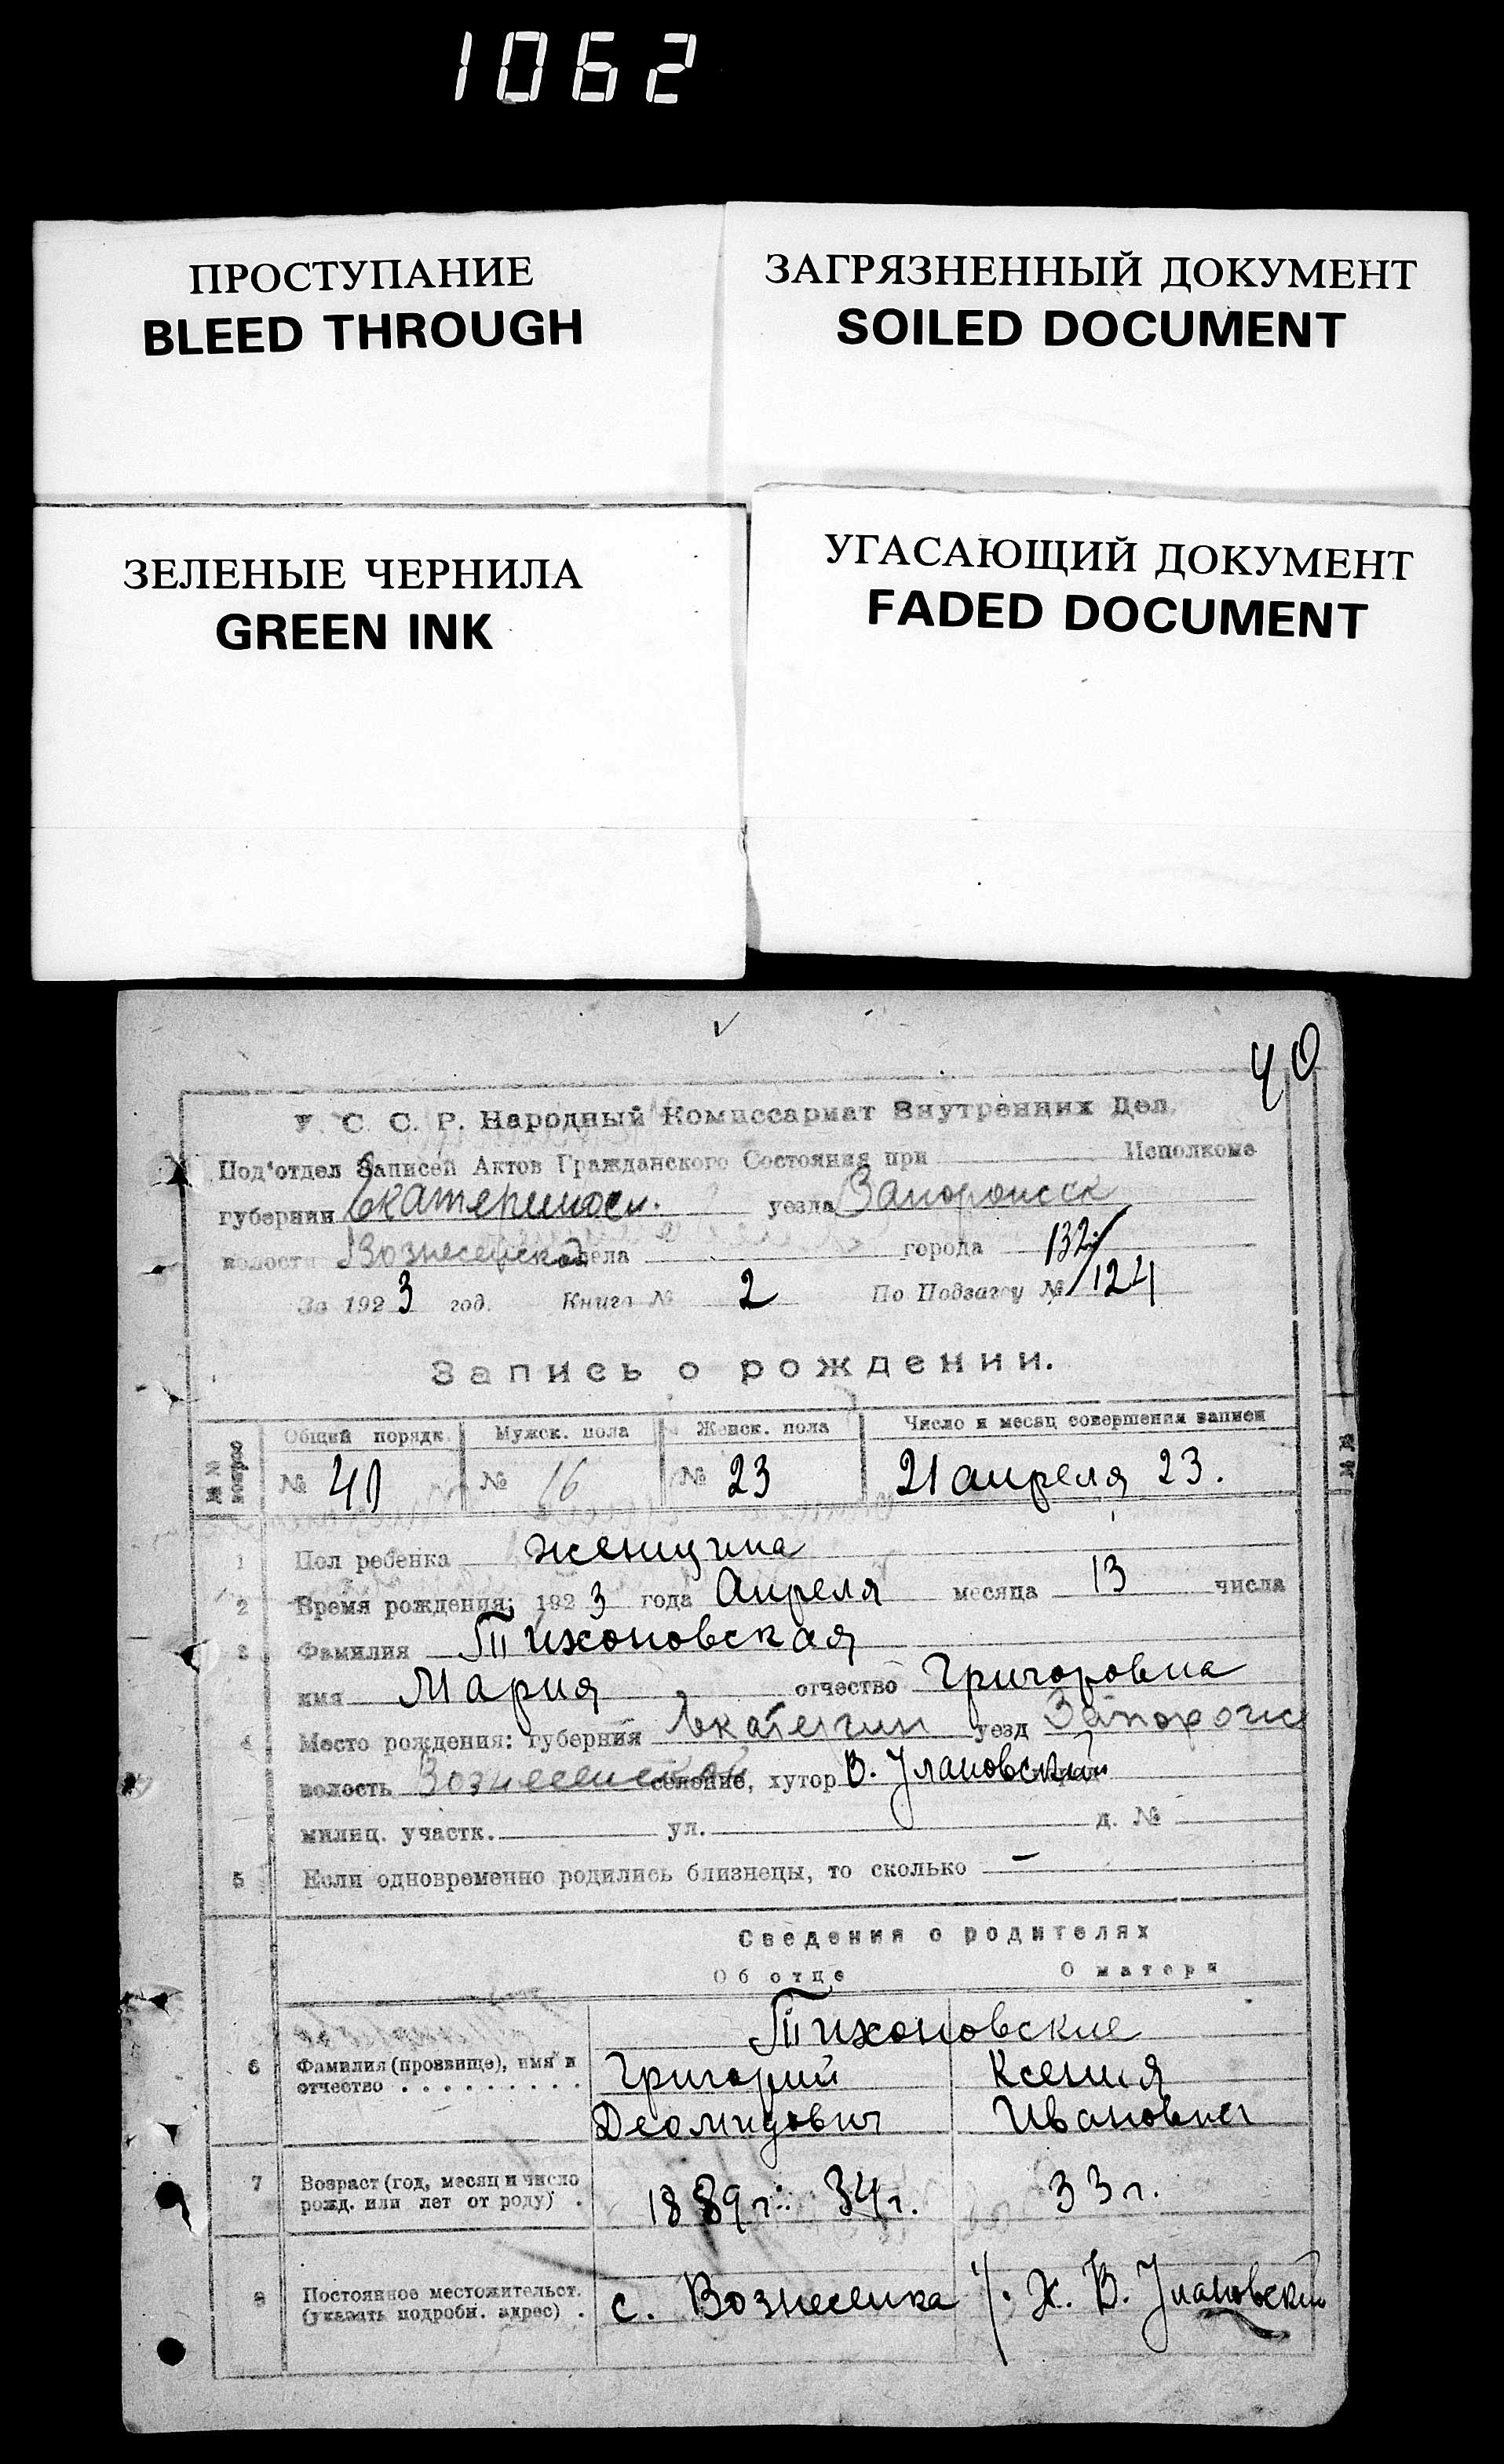 1062
ПРОСТУПАНИЕ
BLEED THROUGH
ЗАГРЯЗНЕННЫЙ ДОКУМЕНТ
SOILED DOCUMENT
ЗЕЛЕНЫЕ ЧЕРНИЛА
GREEN INK
УГАСАЮЩИЙ ДОКУМЕНТ
FADED DOCUMENT
40
У. С. С. Р. Народный Комиссариат Внутренних Дел.
Под'отдел Записей Актов Гражданского Состояния при Исполкоме
губернии Екатериносл. уезда Запорожск
волости Вознесенской села города 132/
За 1923 год. Книга № 2 По Подзагсу № 124
Запись о рождении.
№№ Общий порядк. Мужск. пола Женск. пола Число и месяц совершения записи №№
№ 40 № 16 № 23 21 апреля 23.
1 Пол ребенка женщина
2 Время рождения: 1923 года Апреля месяца 13 числа
3 Фамилия Тихоновская
имя Мария отчество Григоровна
4 Место рождения: губерния Екатерин уезд Запорож
волость Вознесенской селение, хутор В. Улановский
милиц. участк. ул. д. №
5 Если одновременно родились близнецы, то сколько —
Сведения о родителях
Об отце О матери
Тихоновские
6 Фамилия (прозвище), имя и отчество . . . . . . . . .
Григорий Ксения
Деомидович Ивановна
7 Возраст (год, месяц и число рожд. или лет от роду) .
1889 г. 34 г. 33 г.
8 Постоянное местожительст. (указать подробн. адрес) .
с. Вознесенка Х. В. Улановский